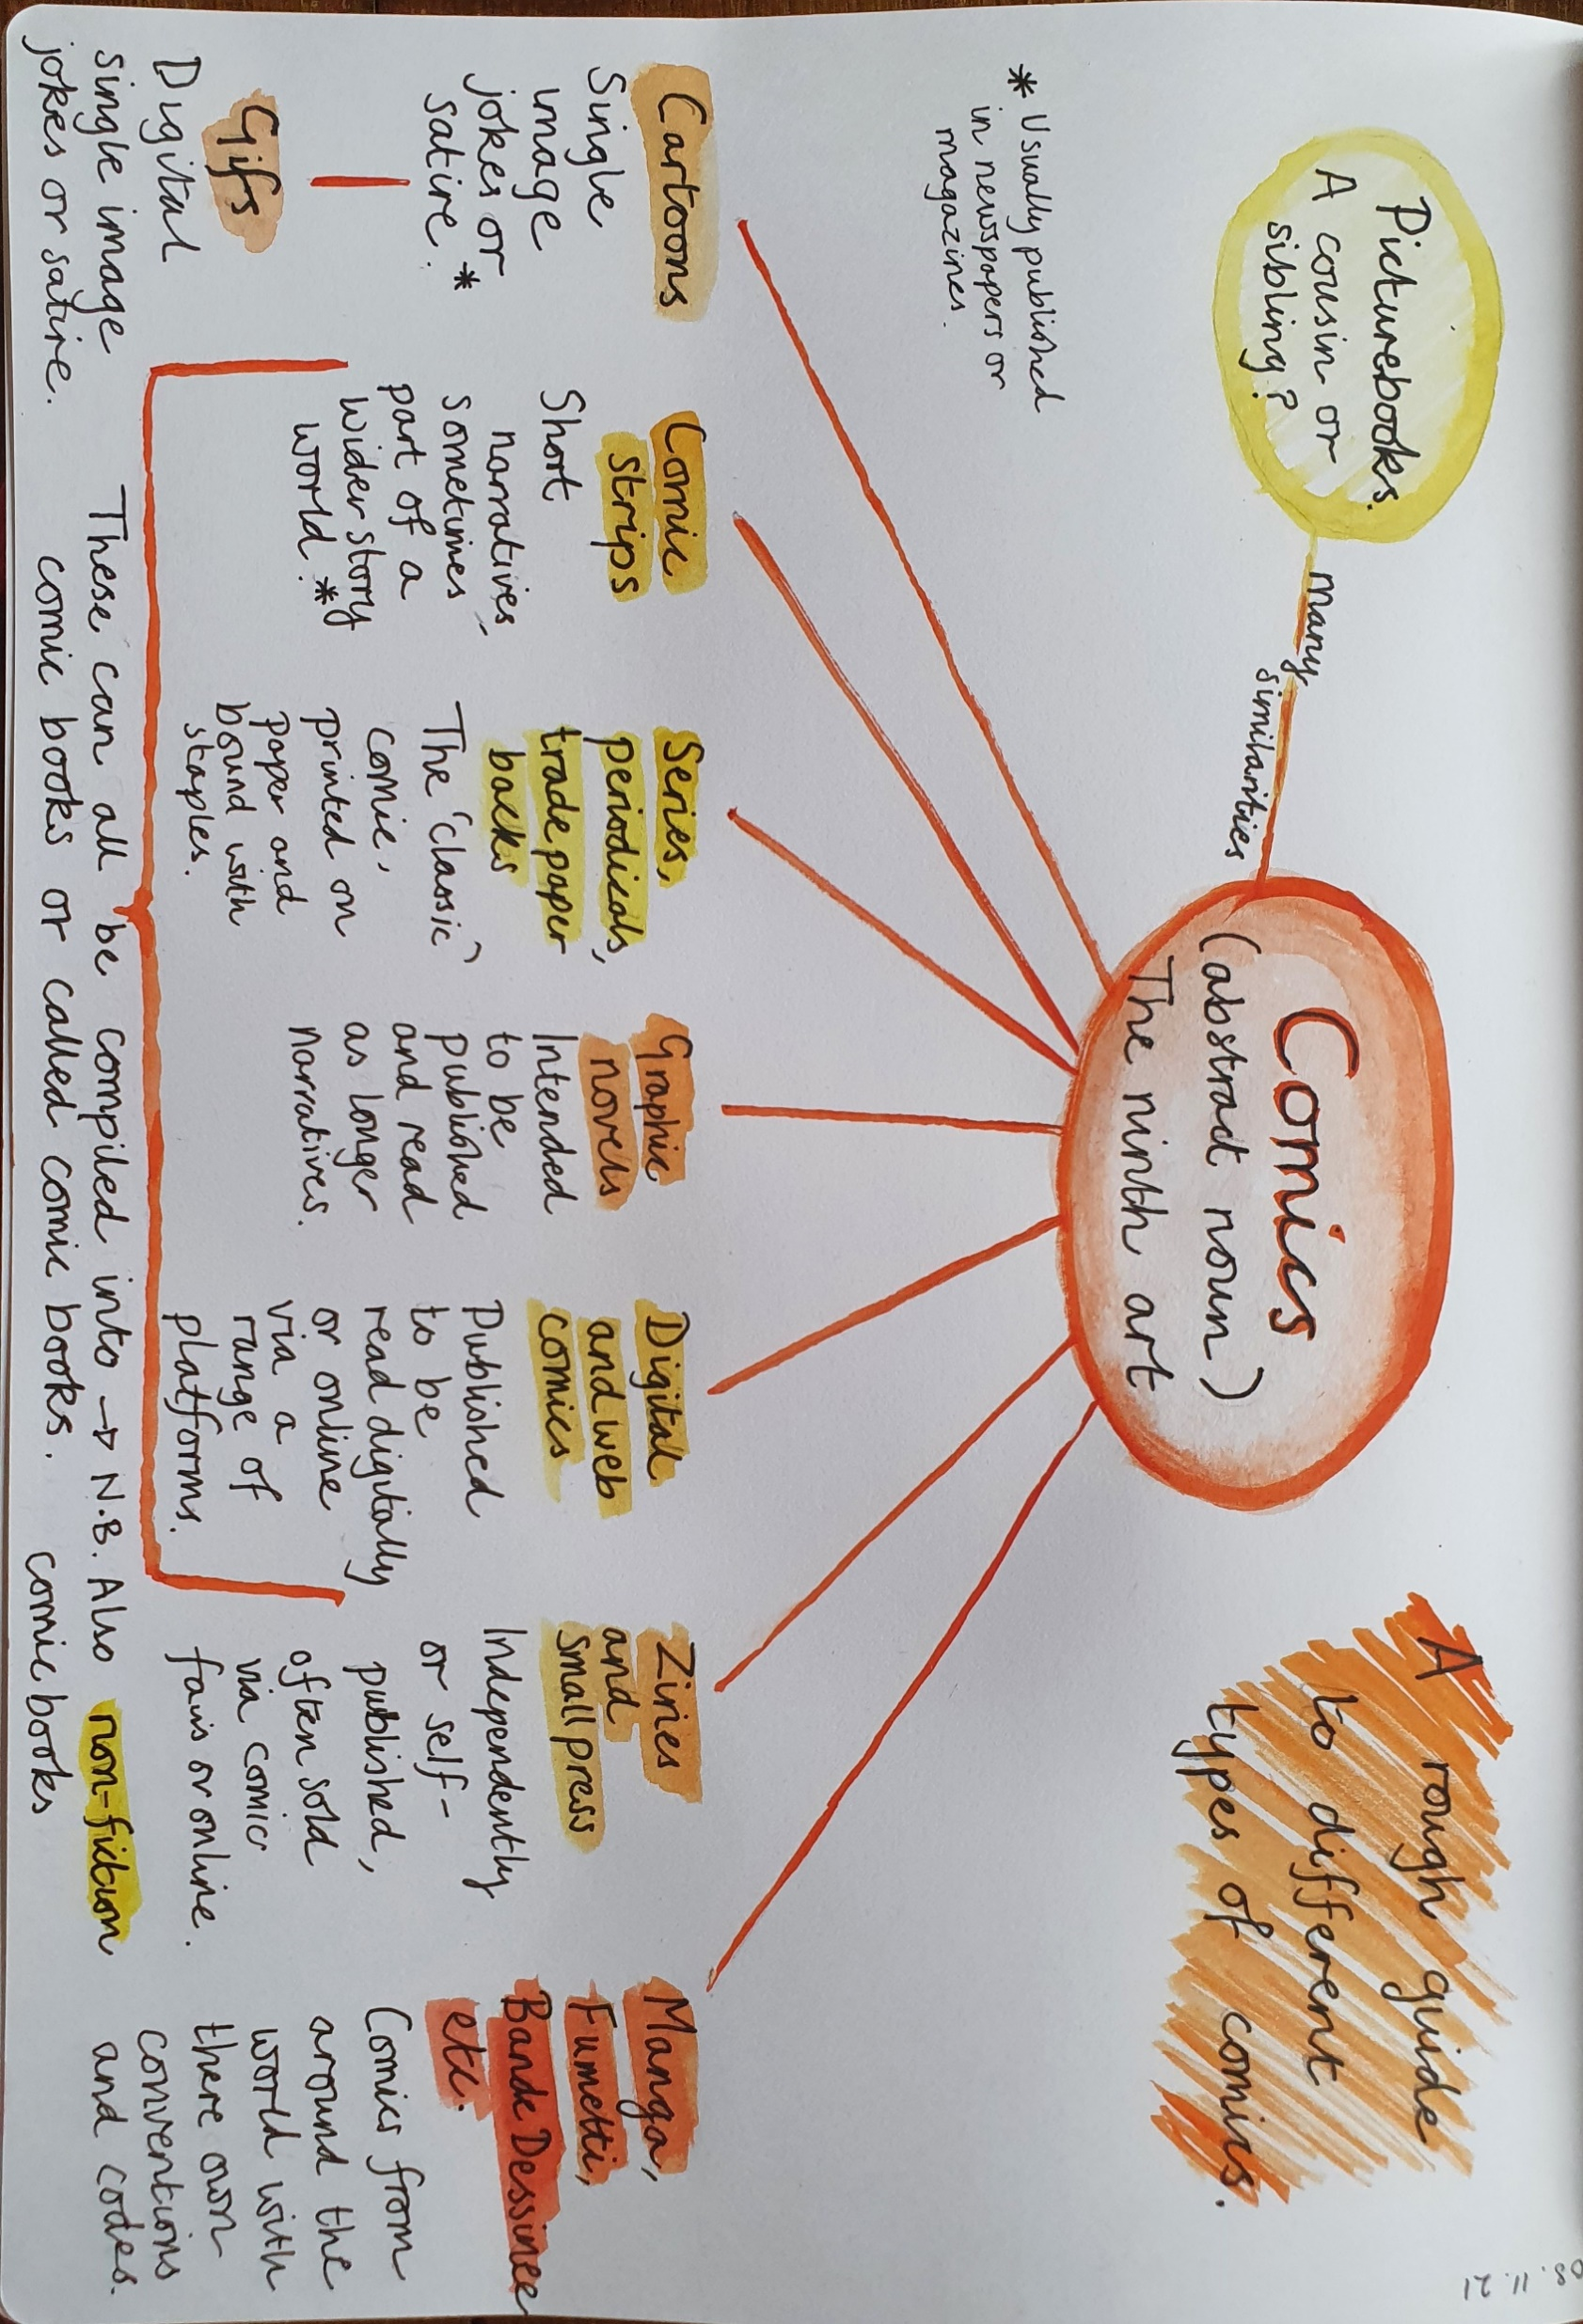 Picturebooks.
A cousin or
sibling?
many
similarities
Comics
(abstract noun)
The ninth art
A rough guide
to different
types of comics.
* Usually published
in newspapers or
magazines.
Cartoons
Single
image
jokes or
satire. *
Gifs
Digital
single image
jokes or satire.
Comic
strips
Short
narratives -
sometimes
part of a
wider story
world. *
Series,
periodicals,
trade paper
backs
The 'classic'
comic,
printed on
paper and
bound with
staples.
Graphic
novels
Intended
to be
published
and read
as longer
narratives.
Digital
and web
comics
Published
to be
read digitally
or online
via a
range of
platforms.
Zines
and
small press
Independently
or self-
published,
often sold
via comic
fairs or online.
Manga,
Fumetti,
Bande Dessinee
etc.
Comics from
around the
world with
there own
conventions
and codes.
These can all be compiled into → N.B. Also non-fiction
comic books or called comic books. comic books
08.11.21